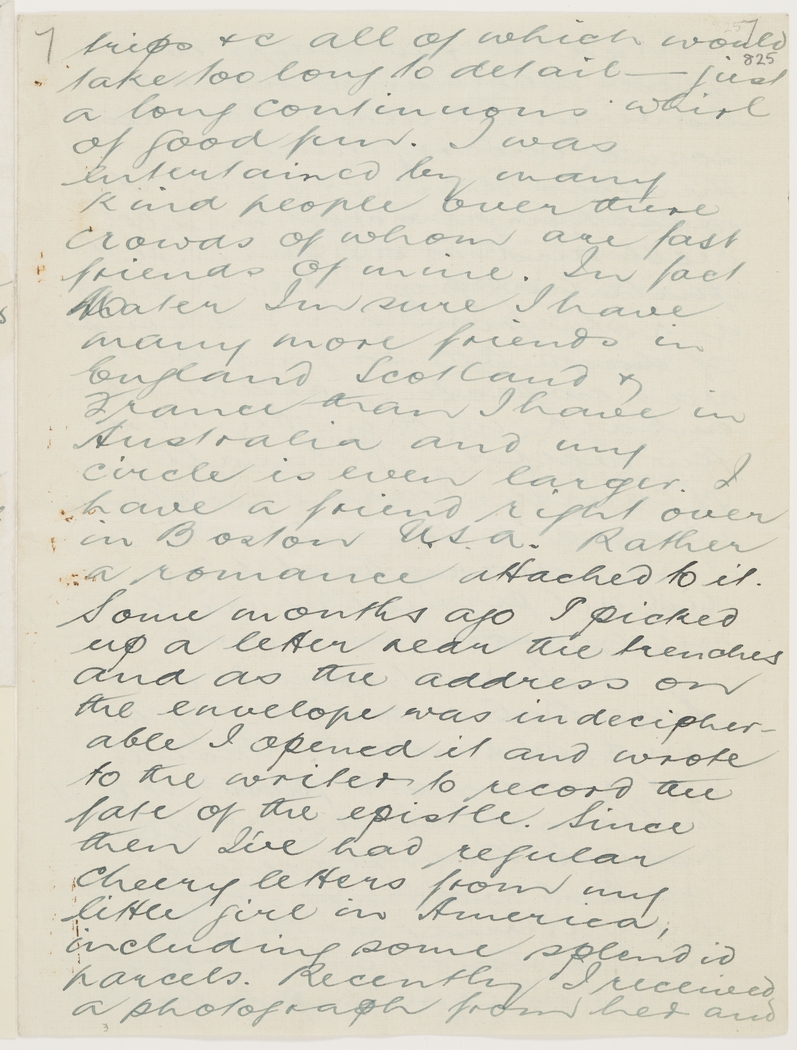 7
7
825
trips &c all of which would
take too long to detail — just
a long continuous whirl
of good fun. I was
entertained by many
kind people over there
crowds of whom are fast
friends of mine. In fact
Mater Im sure I have
many more friends in
England Scotland &
France than I have in
Australia and my
circle is even larger. I
have a friend right over
in Boston U.S.A. Rather
a romance attached to it.
Some months ago I picked
up a letter near the trenches
and as the address on
the envelope was indecipher-
able I opened it and wrote
to the writer to record the
fate of the epistle. Since
then I've had regular
cheery letters from my
little girl in America,
including some splendid
parcels. Recently I received
a photograph from her and